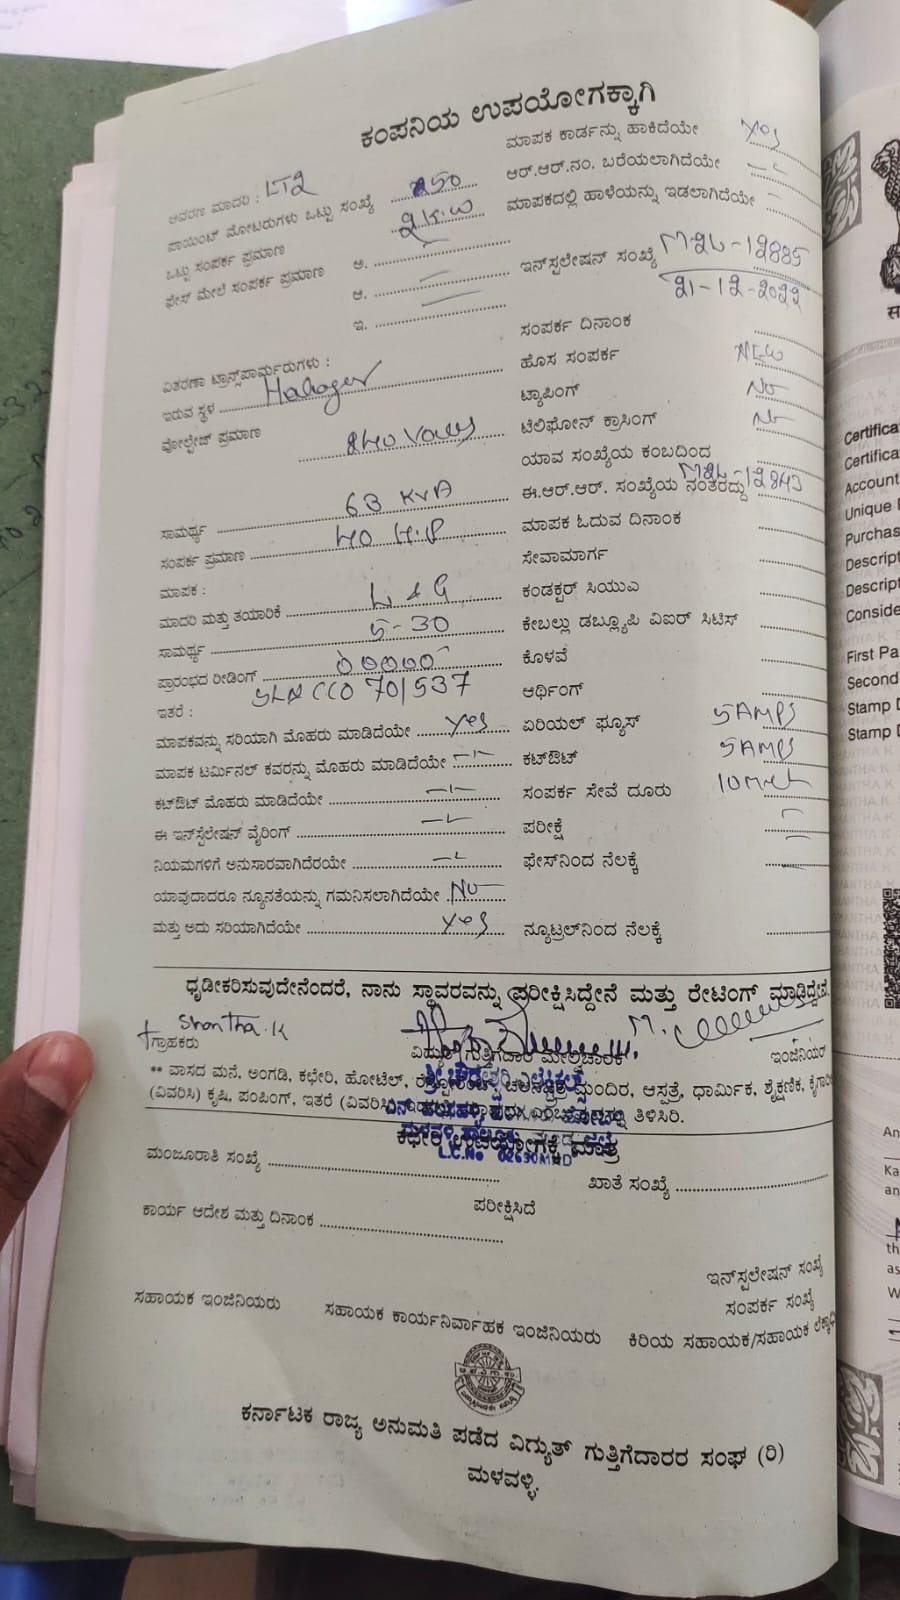 ಕಂಪನಿಯ ಉಪಯೋಗಕ್ಕಾಗಿ
ಆವರಣ ಮಾದರಿ : LT2
ಪಾಯಿಂಟ್ ಮೋಟರುಗಳು ಒಟ್ಟು ಸಂಖ್ಯೆ 250
ಒಟ್ಟು ಸಂಪರ್ಕ ಪ್ರಮಾಣ 2K.W
ಫೇಸ್ ಮೇಲೆ ಸಂಪರ್ಕ ಪ್ರಮಾಣ ಅ.
ಆ.
ಇ.
ವಿತರಣಾ ಟ್ರಾನ್ಸ್‌ಪಾರ್ಮರುಗಳು :
ಇರುವ ಸ್ಥಳ Halager
ವೋಲ್ಟೇಜ್ ಪ್ರಮಾಣ 240 Volts
ಸಾಮರ್ಥ್ಯ 63 KVA
ಸಂಪರ್ಕ ಪ್ರಮಾಣ 40 H.P
ಮಾಪಕ :
ಮಾದರಿ ಮತ್ತು ತಯಾರಿಕೆ L & G
ಸಾಮರ್ಥ್ಯ 5-30
ಪ್ರಾರಂಭದ ರೀಡಿಂಗ್ 00000
ಇತರೆ : 701537
ಮಾಪಕವನ್ನು ಸರಿಯಾಗಿ ಮೊಹರು ಮಾಡಿದೆಯೇ Yes
ಮಾಪಕ ಟರ್ಮಿನಲ್ ಕವರನ್ನು ಮೊಹರು ಮಾಡಿದೆಯೇ -"-
ಕಟ್‌ಔಟ್ ಮೊಹರು ಮಾಡಿದೆಯೇ -"-
ಈ ಇನ್‌ಸ್ಟಲೇಷನ್ ವೈರಿಂಗ್
ನಿಯಮಗಳಿಗೆ ಅನುಸಾರವಾಗಿದೆರಯೇ
ಯಾವುದಾದರೂ ನ್ಯೂನತೆಯನ್ನು ಗಮನಿಸಲಾಗಿದೆಯೇ No
ಮತ್ತು ಅದು ಸರಿಯಾಗಿದೆಯೇ Yes
ಮಾಪಕ ಕಾರ್ಡನ್ನು ಹಾಕಿದೆಯೇ Yes
ಆರ್.ಆರ್.ನಂ. ಬರೆಯಲಾಗಿದೆಯೇ
ಮಾಪಕದಲ್ಲಿ ಹಾಳೆಯನ್ನು ಇಡಲಾಗಿದೆಯೇ
ಇನ್‌ಸ್ಪಲೇಷನ್ ಸಂಖ್ಯೆ MBL-12885
21-12-2022
ಸಂಪರ್ಕ ದಿನಾಂಕ
ಹೊಸ ಸಂಪರ್ಕ NEW
ಟ್ಯಾಪಿಂಗ್ No
ಟೆಲಿಫೋನ್ ಕ್ರಾಸಿಂಗ್ No
ಯಾವ ಸಂಖ್ಯೆಯ ಕಂಬದಿಂದ
ಈ.ಆರ್.ಆರ್. ಸಂಖ್ಯೆಯ ನಂತರದ್ದು MBL-12843
ಮಾಪಕ ಓದುವ ದಿನಾಂಕ
ಸೇವಾಮಾರ್ಗ
ಕಂಡಕ್ಟರ್ ಸಿಯುಎ
ಕೇಬಲ್ಲು ಡಬ್ಲ್ಯೂಪಿ ವಿಐರ್ ಸಿಟಿಸ್
ಕೊಳವೆ
ಆರ್ಥಿಂಗ್
ಏರಿಯಲ್ ಫ್ಯೂಸ್ 5 AMPS
ಕಟ್‌ಔಟ್ 5 AMPS
ಸಂಪರ್ಕ ಸೇವೆ ದೂರು
ಪರೀಕ್ಷೆ
ಫೇಸ್‌ನಿಂದ ನೆಲಕ್ಕೆ
ನ್ಯೂಟ್ರಲ್‌ನಿಂದ ನೆಲಕ್ಕೆ
ಧೃಡೀಕರಿಸುವುದೇನೆಂದರೆ, ನಾನು ಸ್ಥಾವರವನ್ನು ಪರೀಕ್ಷಿಸಿದ್ದೇನೆ ಮತ್ತು ರೇಟಿಂಗ್ ಮಾಡಿದ್ದೇನೆ.
Shantha.K
ಗ್ರಾಹಕರು ವಿದ್ಯುತ್ ಗುತ್ತಿಗೆದಾರ ಮೇಲ್ವಿಚಾರಕ ಇಂಜಿನಿಯರ್
** ವಾಸದ ಮನೆ, ಅಂಗಡಿ, ಕಛೇರಿ, ಹೋಟೆಲ್, ಮಂದಿರ, ಆಸ್ಪತ್ರೆ, ಧಾರ್ಮಿಕ, ಶೈಕ್ಷಣಿಕ,
(ವಿವರಿಸಿ) ಕೃಷಿ, ಪಂಪಿಂಗ್, ಇತರೆ ತಿಳಿಸಿರಿ.
ಕಛೇರಿ ಉಪಯೋಗಕ್ಕೆ ಮಾತ್ರ
ಮಂಜೂರಾತಿ ಸಂಖ್ಯೆ ಖಾತೆ ಸಂಖ್ಯೆ
ಕಾರ್ಯ ಆದೇಶ ಮತ್ತು ದಿನಾಂಕ ಪರೀಕ್ಷಿಸಿದೆ
ಇನ್‌ಸ್ಪಲೇಷನ್ ಸಂಖ್ಯೆ
ಸಂಪರ್ಕ ಸಂಖ್ಯೆ
ಸಹಾಯಕ ಇಂಜಿನಿಯರು ಸಹಾಯಕ ಕಾರ್ಯನಿರ್ವಾಹಕ ಇಂಜಿನಿಯರು ಕಿರಿಯ ಸಹಾಯಕ/ಸಹಾಯಕ
ಕರ್ನಾಟಕ ರಾಜ್ಯ ಅನುಮತಿ ಪಡೆದ ವಿದ್ಯುತ್ ಗುತ್ತಿಗೆದಾರರ ಸಂಘ (ರಿ)
ಮಳವಳ್ಳಿ.
Account
Unique
First Pa
Second
Stamp
Stamp